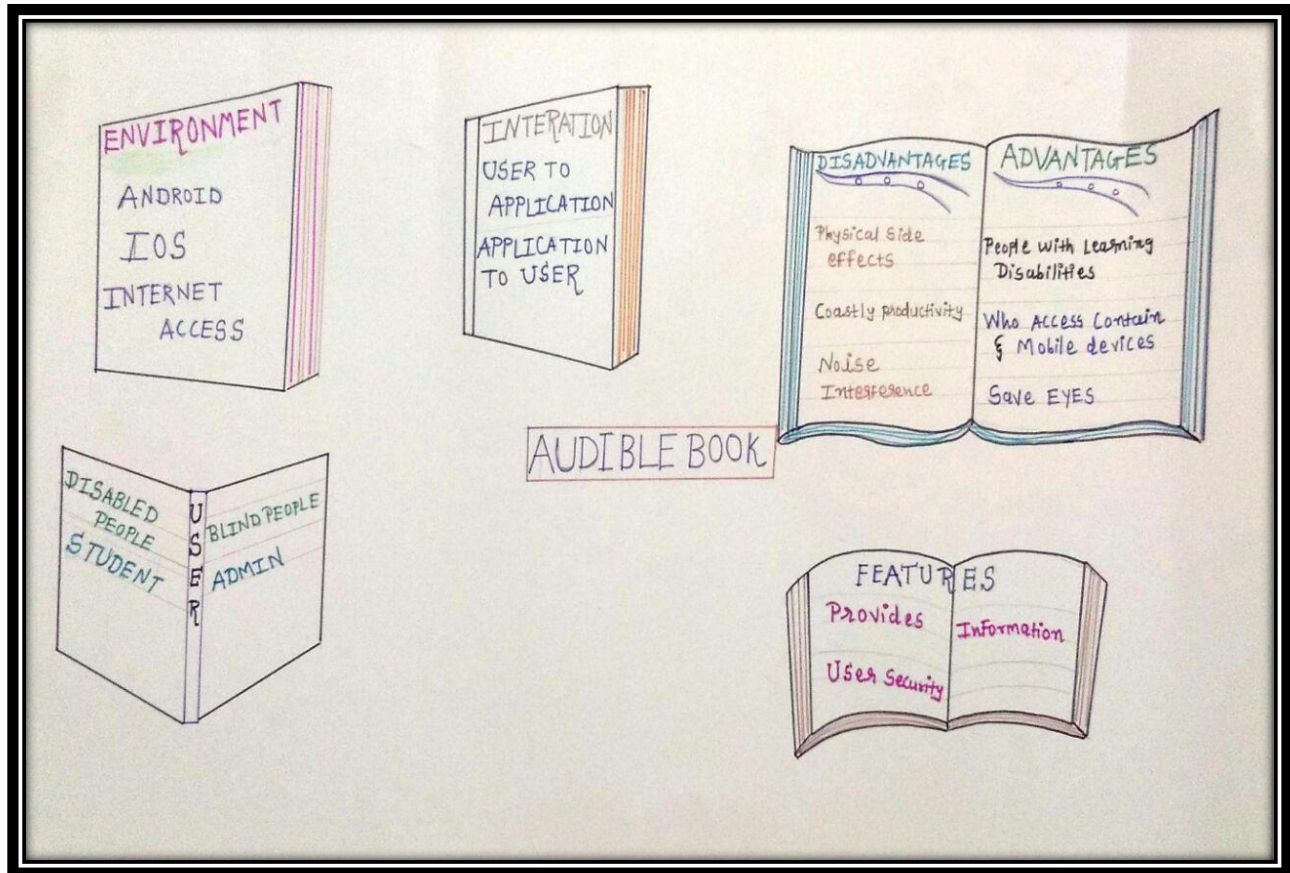 ENVIRONMENT
ANDROID
IOS
INTERNET
ACCESS
INTERATION
USER TO
APPLICATION
APPLICATION
TO USER
DISADVANTAGES
Physical Side
effects
Coastly productivity
Noise
Interference
ADVANTAGES
People with Learning
Disabilities
Who Access Contain
& Mobile devices
Save EYES
AUDIBLE BOOK
DISABLED
PEOPLE
STUDENT
USER
BLIND PEOPLE
ADMIN
FEATURES
Provides
User Security
Information